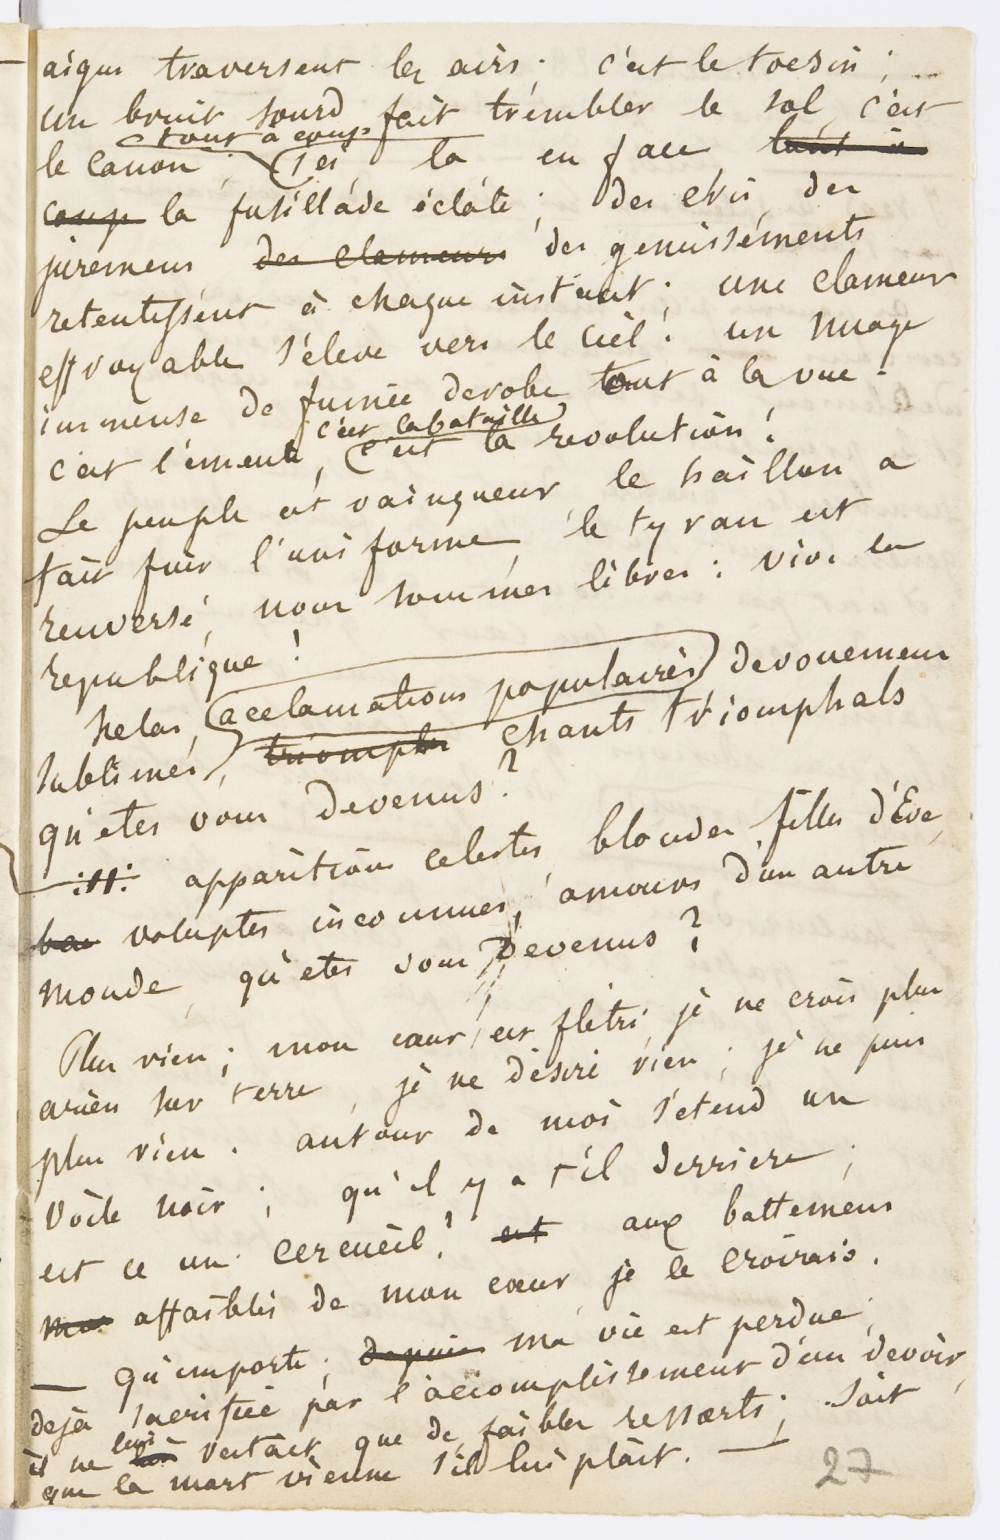 aigus traversent les airs. c'est le tocsin ; ...
un bruit sourd fait trembler le sol, c'est
tout à coup
le canon ; ici, là, en face tout à
coup la fusillade éclate ; des cris, des
juremens, des clameurs des gemissements
retentissent à chaque instant ; une clameur
effroyable s'éleve vers le ciel ! un nuage
immense de fumée derobe tout à la vue.
c'est la bataille
c'est l'émeute, c'est la revolution !
Le peuple est vainqueur, le haillon a
fait fuir l'uniforme, le tyran est
renversé, nous sommes libres : vive la
republique !
helas, acclamations populaires, devouemens
sublimes, triomphe chants triomphals
qu'etes vous devenus ?
apparitions celestes, blondes filles d'Eve,
voluptes inconnues, amours d'un autre
monde, qu'etes vous devenus ?
Plus rien ; mon cœur est flétri, je ne crois plus
a rien sur terre, je ne désire rien ; je ne puis
plus rien. autour de moi s'etend un
voile noir ; qu'il y a t'il derriere ;
est ce un cercueil ? est aux battemens
mon affaiblis de mon cœur je le croirais.
— qu'importe ; depuis ma vie est perdue,
dejà sacrifiée par l'accomplissement d'un devoir,
lui
il ne restait que de faibles ressorts ; soit
que la mort vienne s'il lui plait. —
27